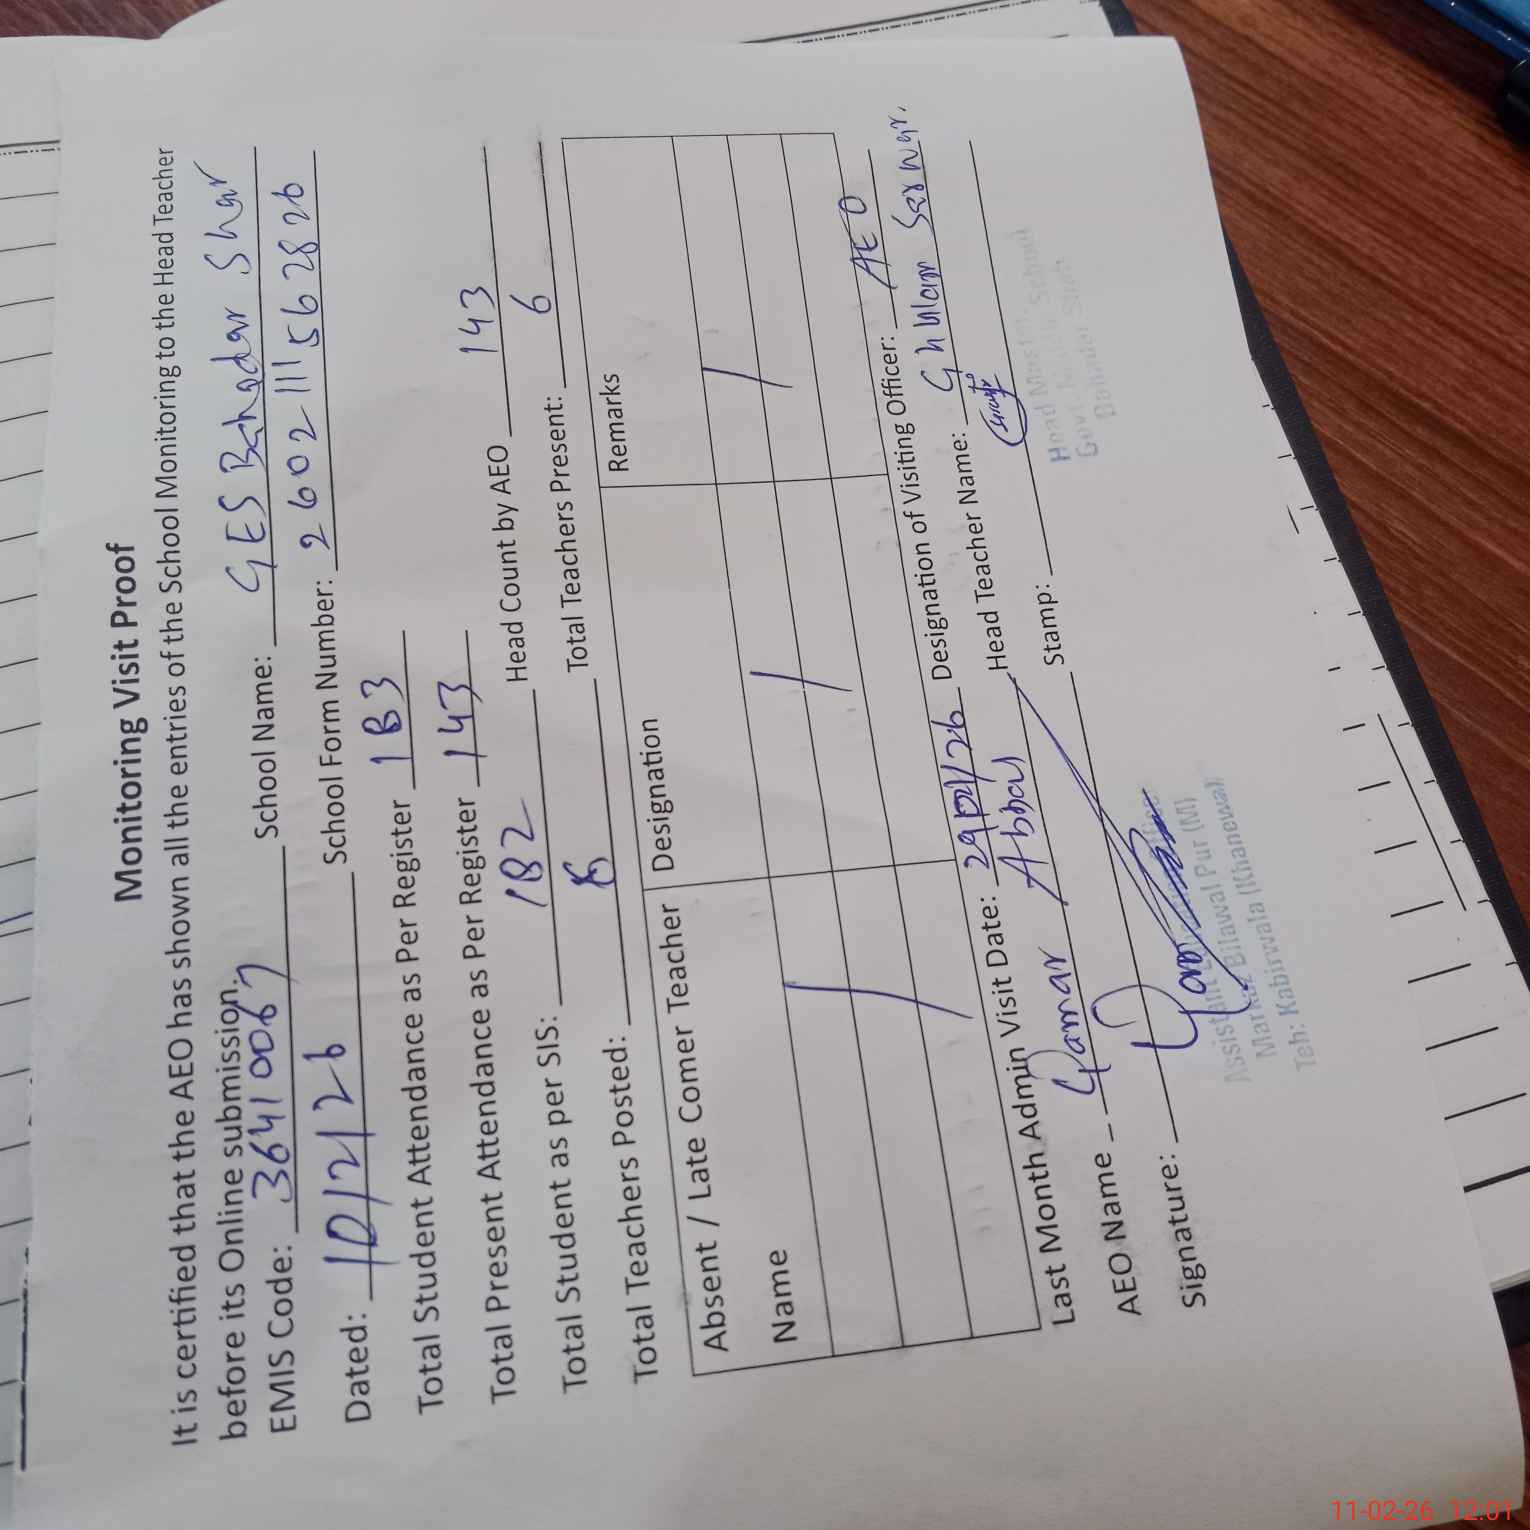 Monitoring Visit Proof
It is certified that the AEO has shown all the entries of the School Monitoring to the Head Teacher
before its Online submission.
EMIS Code: 36410067 School Name: GES Bahadar Shar
Dated: 10/2/26 School Form Number: 2602111562826
Total Student Attendance as Per Register 183
Total Present Attendance as Per Register 143
Total Student as per SIS: 182 Head Count by AEO 143
Total Teachers Posted: 6 Total Teachers Present: 6
Absent / Late Comer Teacher
Name Designation Remarks
Last Month Admin Visit Date: 29/01/26 Designation of Visiting Officer: AEO
AEO Name Qamar Abbas Head Teacher Name: Ghulam Sarwar.
Signature: Stamp:
Head Master
Govt.
Bahadar Shah
Assistant
Markaz Bilawal Pur (M)
Teh: Kabirwala (Khanewal)
11-02-26 12:01